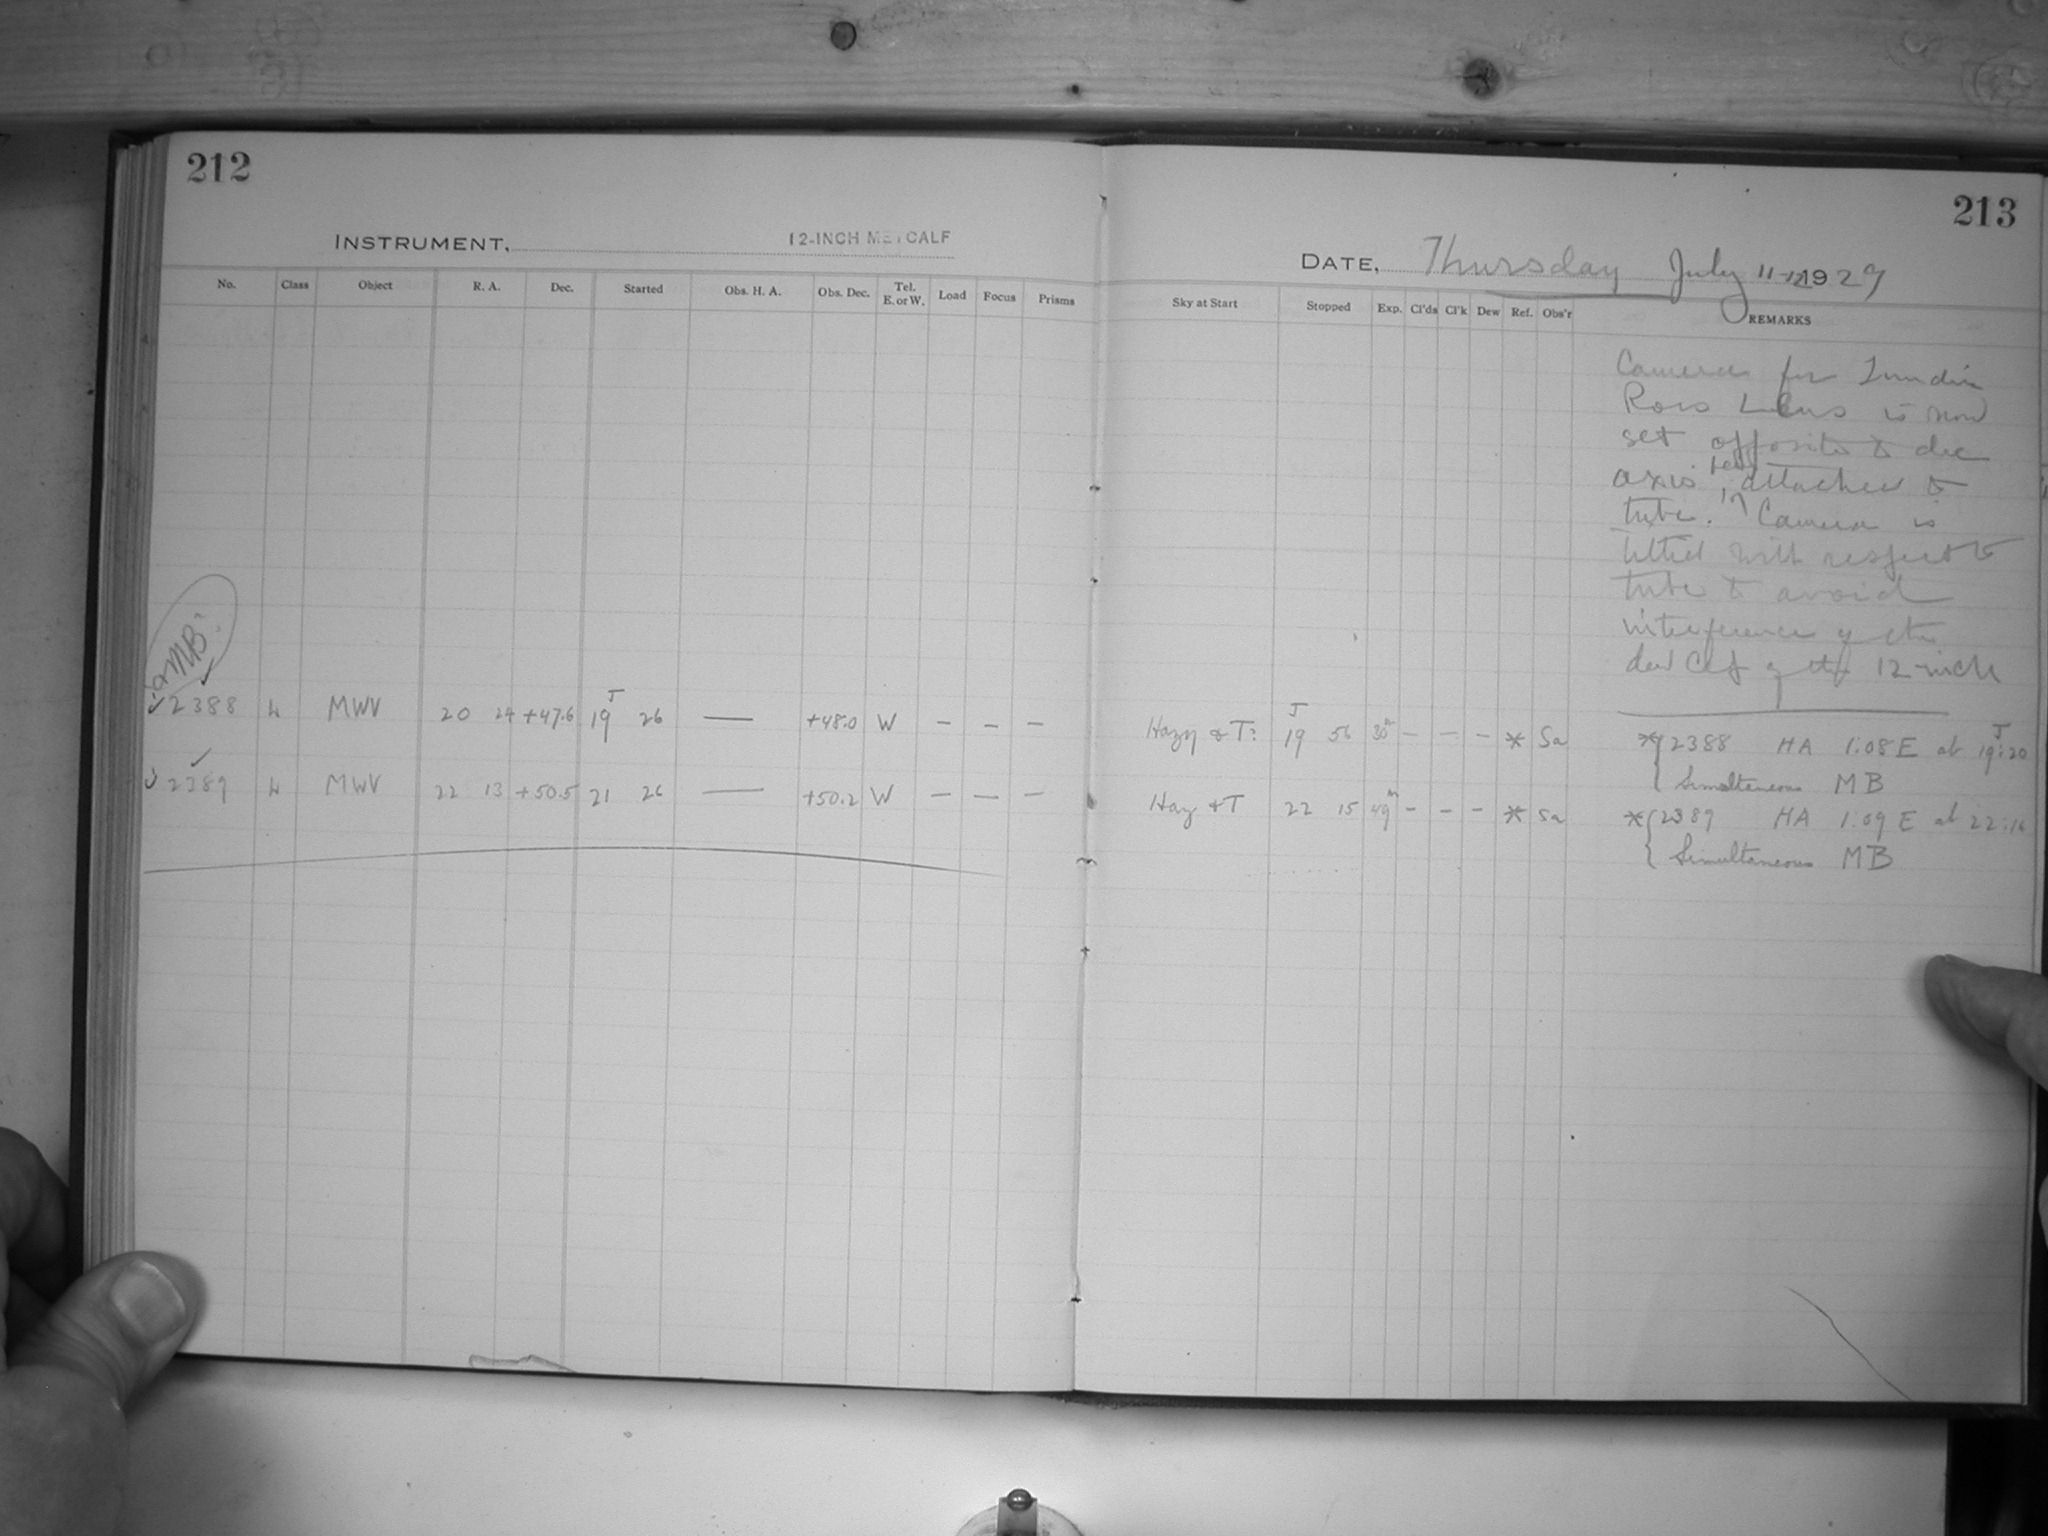 212
INSTRUMENT, 12-INCH METCALF
No. Class Object R. A. Dec. Started Obs. H. A. Obs. Dec. Tel. E. or W. Load Focus Prisms
MB:
2388 L MWV 20 24 +47.6 19 J 26 — +48.0 W – – –
2389 L MWV 22 13 +50.5 21 26 — +50.2 W – – –
213
DATE, Thursday July 11-12 1929
Sky at Start Stopped Exp. Cl'ds Cl'k Dew Ref. Obs'r REMARKS
Camera for Lundin
Ross Lens is now
set opposite to dec
axis attached to
tube. Camera is
tilted with respect to
tube to avoid
interference of the
dew cap of the 12-inch
Hazy & T: 19 J 56 30m – – – * Sa * 2388 HA 1:08 E at 19 J:20
Simultaneous MB
Hazy & T 22 15 49m – – – * Sa * 2389 HA 1:09 E at 22:16
Simultaneous MB